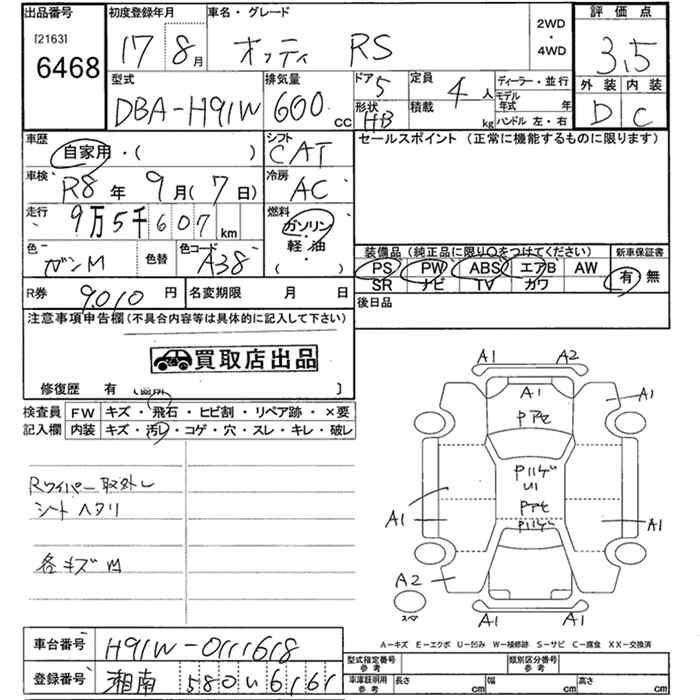 出品番号 初度登録年月 車名・グレード 2WD・4WD 評価点
[2163] 6468 17年8月 オッティ RS 3.5
外装 内装
D C
型式 排気量 ドア 5 定員 4人 ディーラー・並行
DBA-H91W 600cc 形状 HB 積載 kg モデル年式 年
ハンドル 左・右
車歴 自家用・( ) シフト CAT セールスポイント (正常に機能するものに限ります)
車検 R8年9月(7日) 冷房 AC
走行 9万5千607km 燃料 ガソリン・軽油 ( )
色 ガンM 色替 色コード A38
装備品 (純正品に限り○をつけてください) 新車保証書
PS PW ABS エアB AW 有 無
SR ナビ TV カワ
R券 9010円 名変期限 月 日 後日品
注意事項申告欄 (不具合内容等は具体的に記入して下さい)
買取店出品
修復歴 有 〔箇所 〕
検査員記入欄 FW キズ・飛石・ヒビ割・リペア跡・×要
内装 キズ・汚レ・コゲ・穴・スレ・キレ・破レ
Rワイパー取外し
シートヘタリ
各キズM
A1 A2
A1 A1
Pアセ
Pハゲ
U1
Pアセ
Pハゲ
A1 A1
A2
スペア
A1 A1
A-キズ E-エクボ U-凹み W-補修跡 S-サビ C-腐食 XX-交換済
車台番号 H91W-0111618
登録番号 湘南 580 い 6161
型式指定番号 参考 類別区分番号 参考
車庫証明用 参考 長さ cm 幅 cm 高さ cm